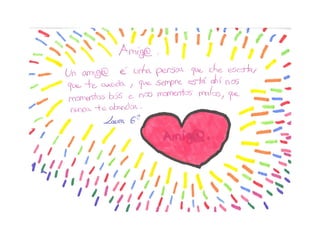 Amig@.
Un amig@ é unha persoa que che escoita,
que te axuda, que sempre está ahí nos
momentos bos e nos momentos malos, que
nunca te abandoa.
Laura 6º
Amig@